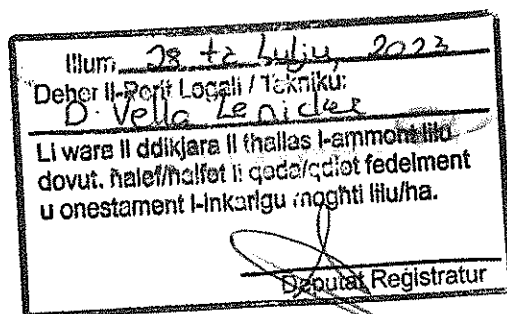 Illum 28 ta Lulju, 2023
Deher Il-Perit Legali / Tekniku:
D. Vella Zenicker
Li wara li ddikjara li tħallas l-ammont lilu
dovut, ħalef/ħalfet li qeda/qdiet fedelment
u onestament l-inkarigu mogħti lilu/ha.
Deputat Reġistratur